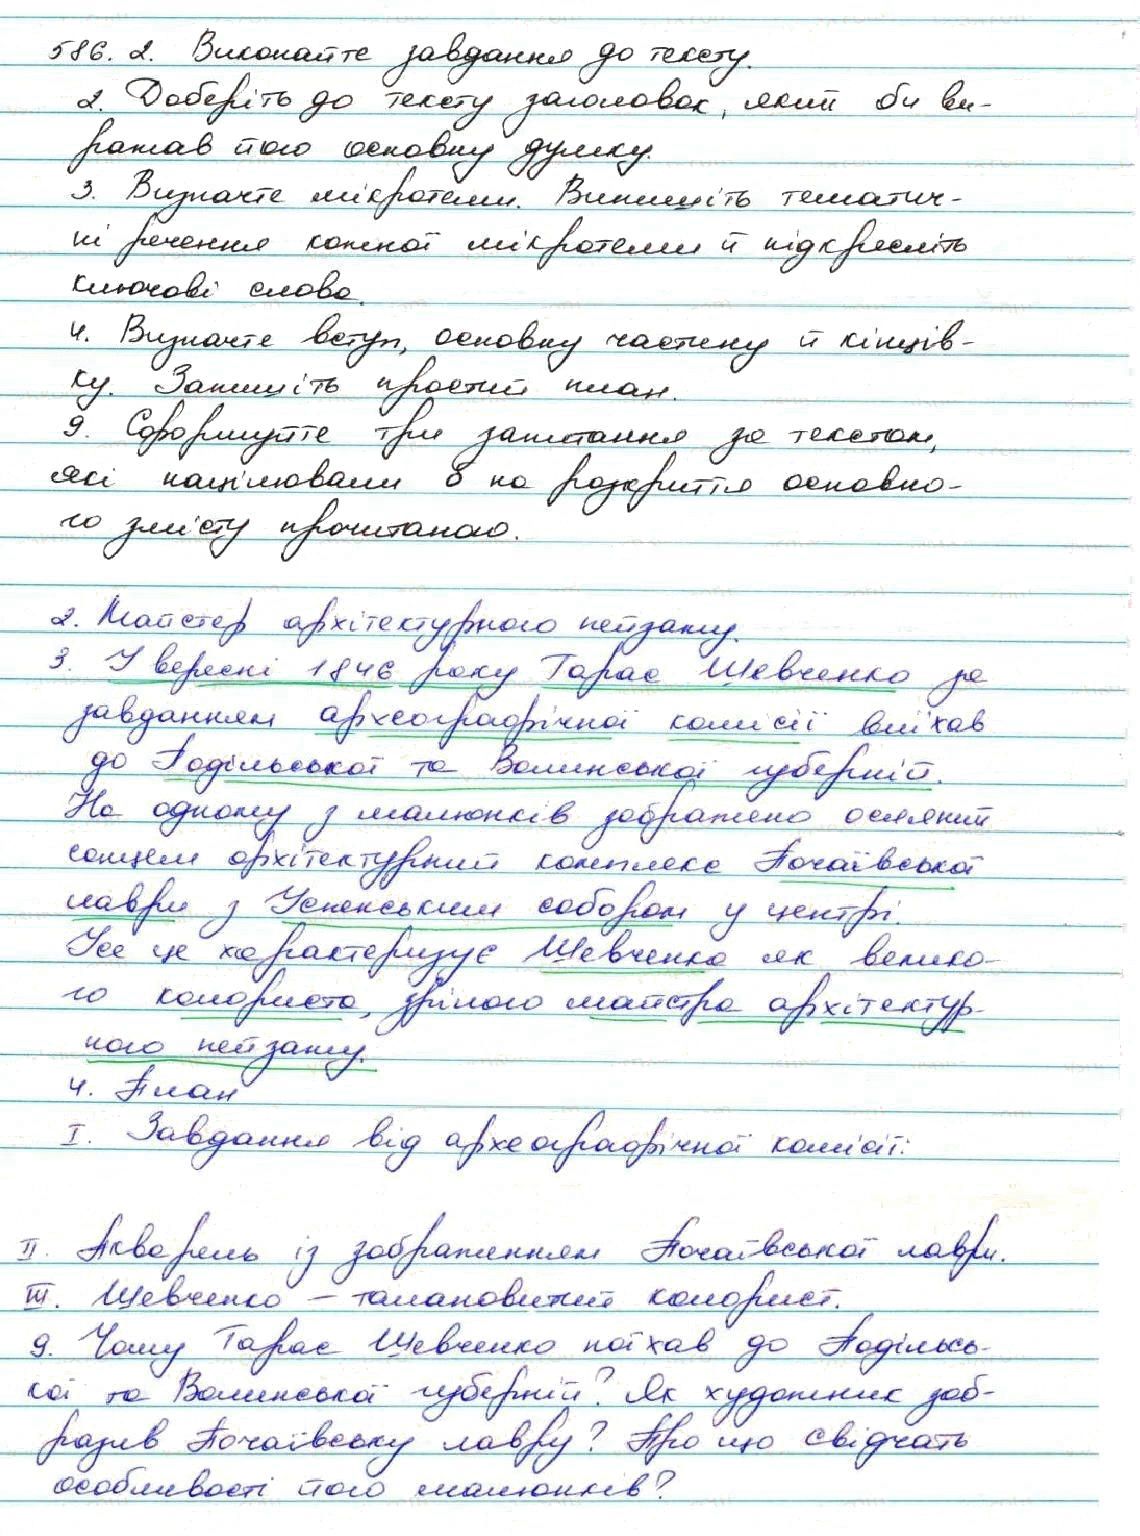 586. 2. Виконайте завдання до тексту.
2. Доберіть до тексту заголовок, який би ви-
ражав його основну думку.
3. Визначте мікротеми. Випишіть тематич-
ні речення кожної мікротеми й підкресліть
ключові слова.
4. Визначте вступ, основну частину й кінців-
ку. Запишіть простий план.
9. Сформуйте три запитання за текстом,
які націлювали б на розкриття основно-
го змісту прочитаного.
2. Майстер архітектурного пейзажу.
3. У вересні 1846 року Тарас Шевченко за
завданням археографічної комісії виїхав
до Подільської та Волинської губерній.
На одному з малюнків зображено осяяний
сонцем архітектурний комплекс Почаївської
лаври з Успенським собором у центрі.
Усе це характеризує Шевченка як велико-
го колориста, зрілого майстра архітектур-
ного пейзажу.
4. План
I. Завдання від археографічної комісії:
II. Акварель із зображенням Почаївської лаври.
III. Шевченко – талановитий колорист.
9. Чому Тарас Шевченко поїхав до Подільсь-
кої та Волинської губерній? Як художник зоб-
разив Почаївську лавру? Про що свідчать
особливості його малюнків?